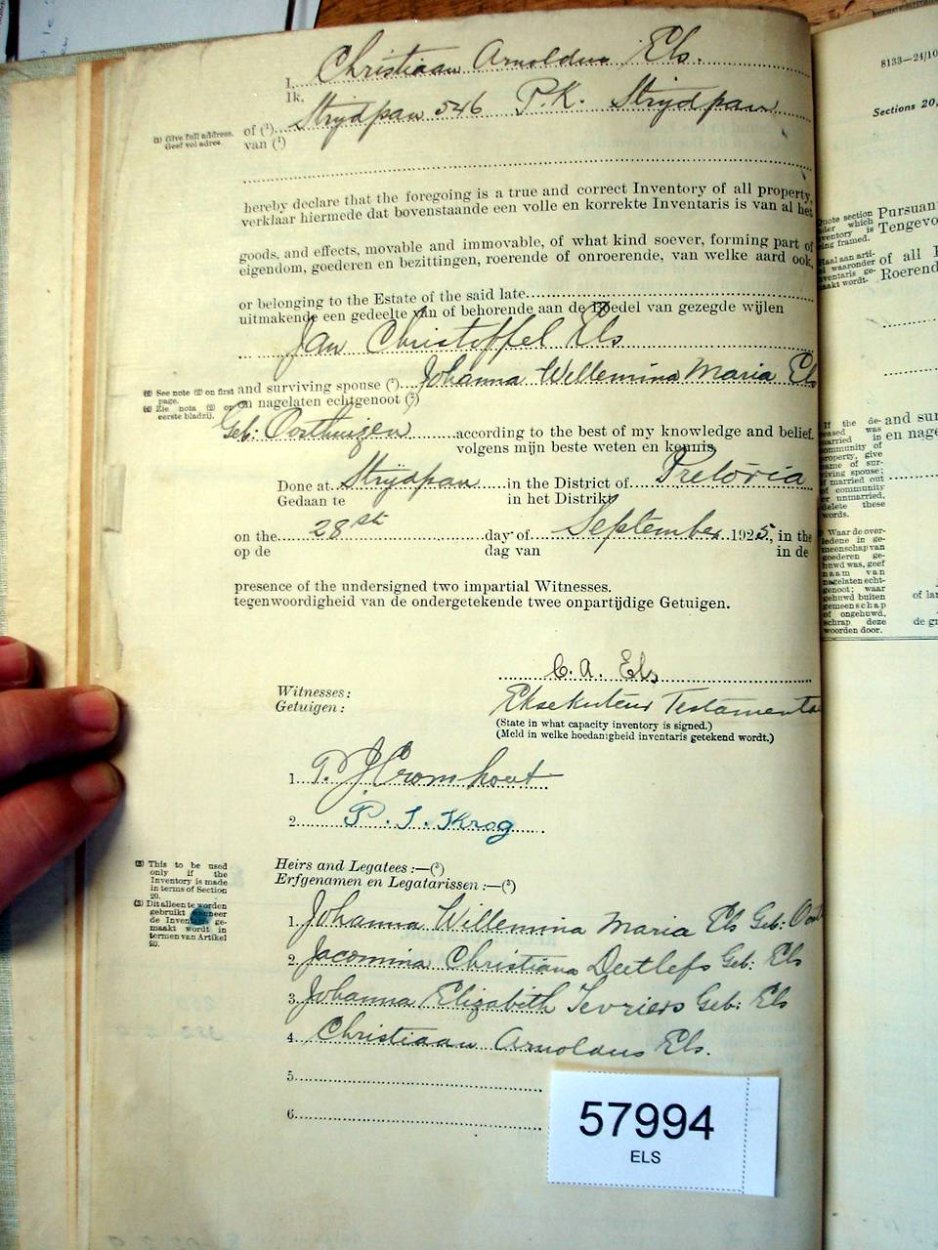 I, Christiaan Arnoldus Els.
Ik,
(1) Give full address.
Geef vol adres.
of (1) Strydpan 546 P.K. Strydpan
van (1)
hereby declare that the foregoing is a true and correct Inventory of all property,
verklaar hiermede dat bovenstaande een volle en korrekte Inventaris is van al het
goods, and effects, movable and immovable, of what kind soever, forming part of
eigendom, goederen en bezittingen, roerende of onroerende, van welke aard ook,
or belonging to the Estate of the said late
uitmakende een gedeelte van of behorende aan de Boedel van gezegde wijlen
Jan Christoffel Els
(2) See note (2) on first page.
(2) Zie nota (2) op eerste bladzij.
and surviving spouse (2) Johanna Willemina Maria Els
en nagelaten echtgenoot (2)
Geb: Oosthuizen according to the best of my knowledge and belief.
volgens mijn beste weten en kennis
Done at Strydpan in the District of Pretoria
Gedaan te in het Distrikt
on the 28st day of September 1925, in the
op de dag van in de
presence of the undersigned two impartial Witnesses.
tegenwoordigheid van de ondergetekende twee onpartijdige Getuigen.
C. A. Els
Witnesses:
Getuigen:
Eksekuteur Testamenta
(State in what capacity inventory is signed.)
(Meld in welke hoedanigheid inventaris getekend wordt.)
1. P. J. Cromhout
2. P. J. Krog
(3) This to be used
only if the
Inventory is made
in terms of Section
20.
(3) Dit alleen te worden
gebruikt wanneer
de Inventaris ge-
maakt wordt in
termen van Artikel
20.
Heirs and Legatees :—(3)
Erfgenamen en Legatarissen :—(3)
1. Johanna Willemina Maria Els Geb: Oost
2. Jacomina Christiana Deetlefs Geb: Els
3. Johanna Elizabeth Geb: Els
4. Christiaan Arnoldus Els.
5.
6.
57994
ELS
8133—24/10
Sections 20,
Quote section
under which
inventory is
being framed.
Pursuan
Tengevo
of all
Roerend
If the de-
ceased was
married in
community of
property, give
name of sur-
viving spouse;
if married out
of community
or unmarried,
delete these
words.
and sur
en nage
Waar de over-
ledene in ge-
meenschap van
goederen ge-
huwd was, geef
naam van
nagelaten echt-
genoot; waar
gehuwd buiten
gemeenschap
of ongehuwd,
schrap deze
woorden door.
of lan
de gr